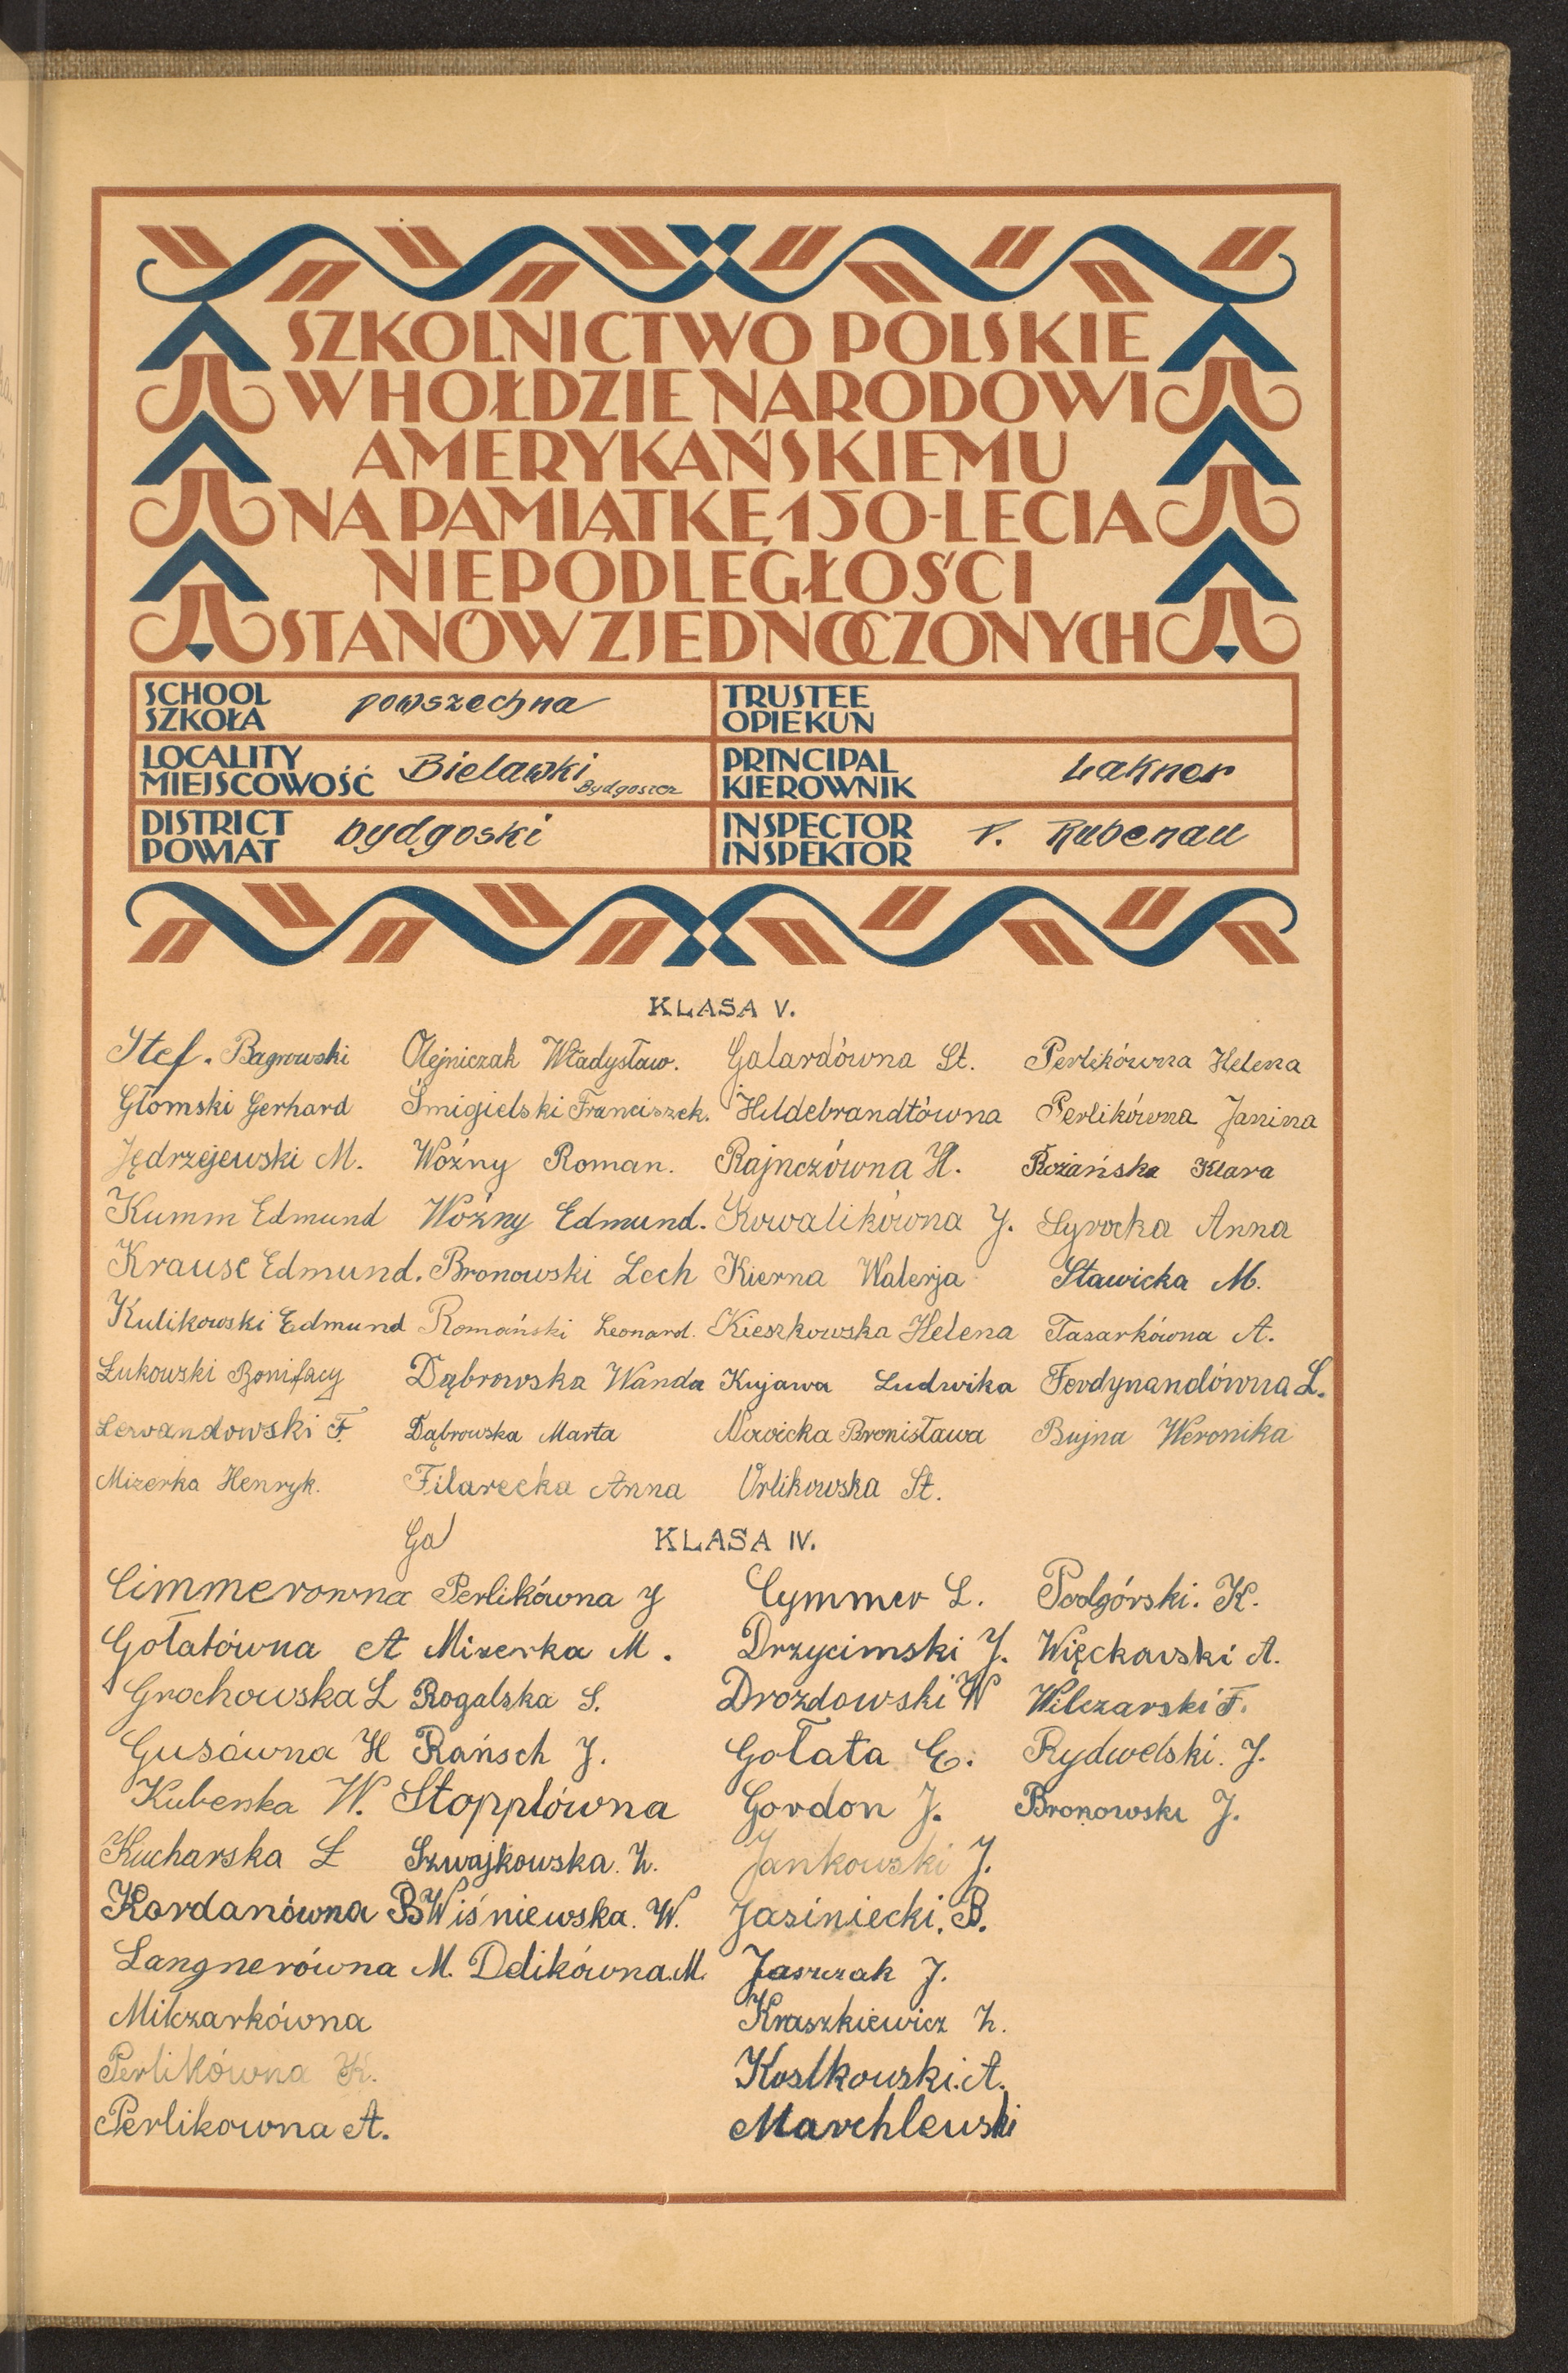 SZKOLNICTWO POLSKIE
W HOŁDZIE NARODOWI
AMERYKAŃSKIEMU
NA PAMIĄTKĘ 150-LECIA
NIEPODLEGŁOŚCI
STANÓW ZJEDNOCZONYCH
SCHOOL
SZKOŁA powszechna
TRUSTEE
OPIEKUN
LOCALITY
MIEJSCOWOŚĆ Bielawki Bydgoszcz
PRINCIPAL
KIEROWNIK Lakner
DISTRICT
POWIAT bydgoski
INSPECTOR
INSPEKTOR v. Rubenau
KLASA V.
Stef. Bagrowski Olejniczak Władysław. Galardówna St. Perlikówna Helena
Głomski Gerhard Śmigielski Franciszek. Hildebrandtówna Perlikówna Janina
Jędrzejewski M. Woźny Roman. Rajnczówna H. Rożańska Klara
Kumm Edmund Woźny Edmund. Kowalikówna J. Syrocka Anna
Krause Edmund. Bronowski Lech Kierna Walerja Stawicka M.
Kulikowski Edmund Romański Leonard. Kieszkowska Helena Tasarkówna A.
Łukowski Bonifacy Dąbrowska Wanda Kujawa Ludwika Ferdynandówna L.
Lewandowski F. Dąbrowska Marta Nowicka Bronisława Bujna Weronika
Mizerka Henryk. Filarecka Anna Orlikowska St.
Ga
KLASA IV.
Cimmerowna Perlikówna J Cymmer L. Podgórski. K.
Gołatówna A Mizerka M. Drzycimski J. Więckowski A.
Grochowska L Rogalska S. Drozdowski W Wilczarski F.
Gusówna H Rańsch J. Gołata E. Rydwelski. J.
Kubenka W. Stopplówna Gordon J. Bronowski J.
Kucharska Ł Szwajkowska. Z. Jankowski J.
Kordanówna B Wiśniewska. W. Jasiniecki. B.
Langnerówna M. Delikówna. M. Jaszczak J.
Milczarkówna Kraszkiewicz Z.
Perlikówna K. Koslkowski. A.
Perlikowna A. Marchlewski